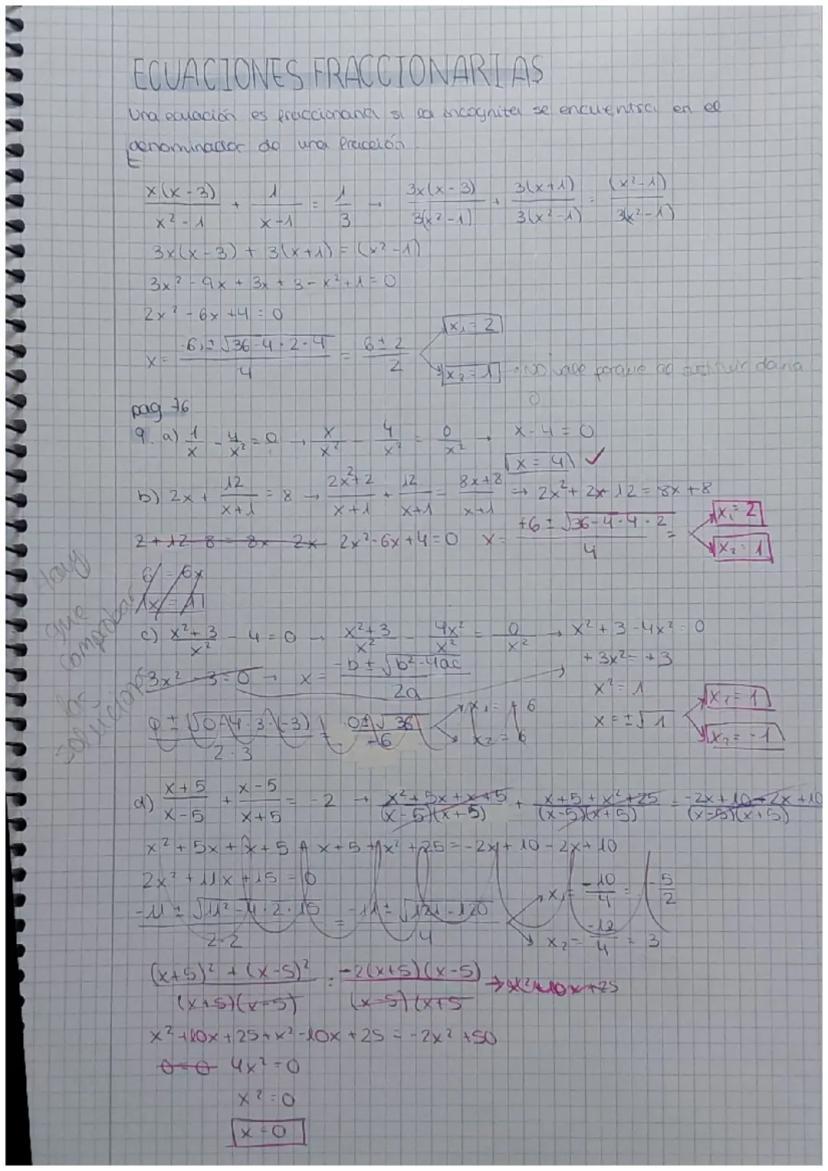 ECUACIONES FRACCIONARIAS
Una ecuación es fraccionaria si la incognita se encuentra en el
denominador de una fracción.
x(x-3)/x²-1 + 1/x-1 = 1/3 → 3x(x-3)/3(x²-1) + 3(x+1)/3(x²-1) = (x²-1)/3(x²-1)
3x(x-3) + 3(x+1) = (x²-1)
3x² - 9x + 3x + 3 - x² + 1 = 0
2x² - 6x + 4 = 0
x = 6 ± √36-4·2·4/4 = 6±2/2
x₁ = 2
x₂ = 1 · No vale porque al sustituir daria
0
pag 76
9. a) 1/x - 4/x² = 0 → x/x² - 4/x² = 0/x² → x - 4 = 0
x = 4 ✓
b) 2x + 12/x+1 = 8 → 2x²+2/x+1 + 12/x+1 = 8x+8/x+1 → 2x² + 2x 12 = 8x + 8
2+12-8 = 8x-2x 2x²-6x+4=0 x = +6 ± √36-4·4·2/4 =
x₁ = 2
x₂ = 1
6 = 6x
1x = 1
hay que comprobar las soluciones
c) x²+3/x² - 4 = 0 → x²+3/x² - 4x²/x² = 0/x² → x² + 3 - 4x² = 0
3x² - 3 = 0 → x = -b ± √b²-4ac/2a
+3x² = +3
x² = 1
x = ±√1
x₁ = 1
x₂ = -1
0 ± √0-(4·3·(-3)/2·3 = 0±√36/-6
x₁ = +6
x₂ = 6
d) x+5/x-5 + x-5/x+5 = -2 → x²+5x+x+5/(x-5)(x+5) + x+5+x²+25/(x-5)(x+5) = -2x+10-2x+10/(x-5)(x+5)
x² + 5x + x + 5 + x + 5 + x² + 25 = -2x + 10 - 2x + 10
2x² + 11x + 15 = 0
-11 ± √11²-4·2·15/2·2 = -11 ± √121-120/4
x₁ = -10/4 = -5/2
x₂ = -12/4 = 3
(x+5)² + (x-5)²/(x+5)(x-5) = -2(x+5)(x-5)/(x-5)(x+5 → x²+10x+25
x²+10x+25+x²-10x+25 = -2x²+50
0=0 4x²=0
x²=0
x=0